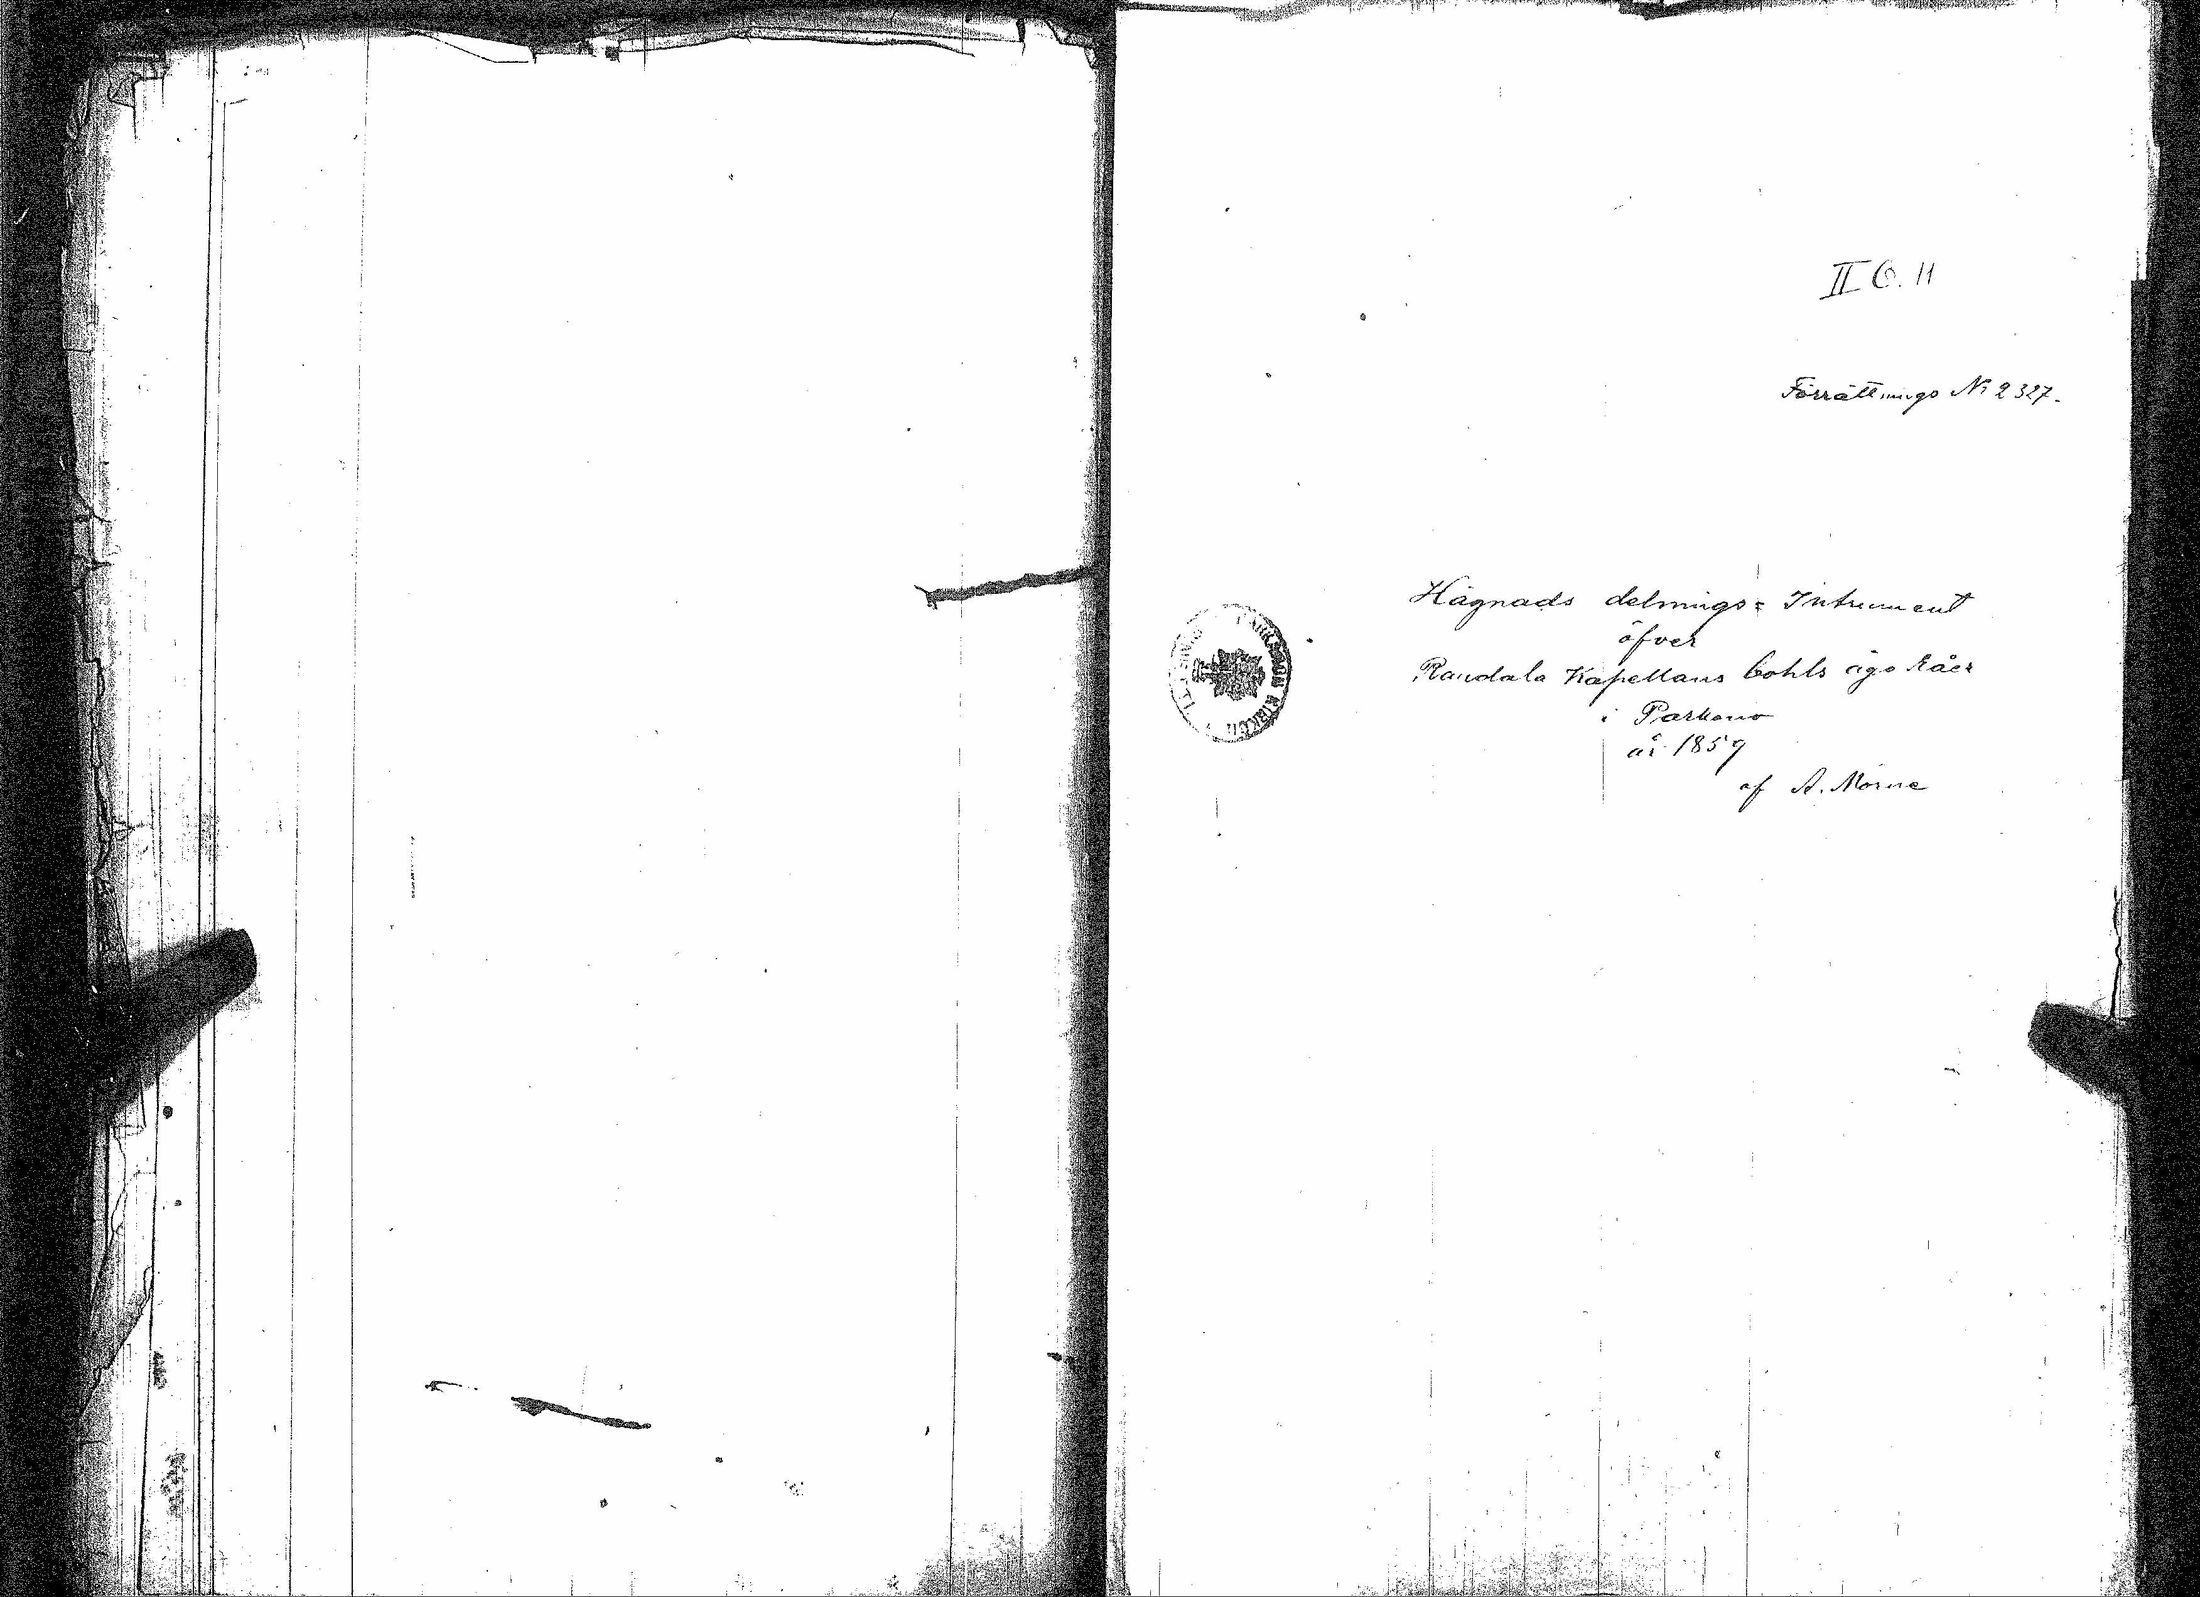 II C. 11
Förrättnings No 2327.
Hägnads delnings= Intrument
öfver
Raudala Kapellans bohls ägo råer
i Parkano
år 1859
af A. Morne
PARKANON KIRKON